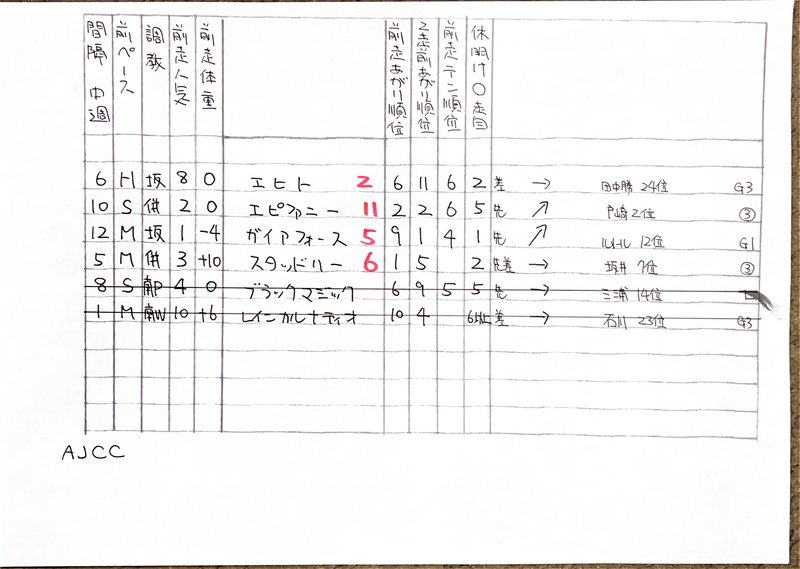 間隔 中 週 前ペース 調教 前走人気 前走体重 前走あがり順位 2走前あがり順位 前走テン順位 休明け〇走目
6 H 坂 8 0 エヒト 2 6 11 6 2 差 → 田中勝 24位 G3
10 S 併 2 0 エピファニー 11 2 2 6 5 先 ↗ 戸崎 2位 ③
12 M 坂 1 -4 ガイアフォース 5 9 1 4 1 先 ↗ ルメール 12位 G1
5 M 併 3 +10 スタッドリー 6 1 5 2 先差 → 坂井 7位 ③
8 S 南P 4 0 ブラックマジック 6 9 5 5 先 → 三浦 14位
1 M 南W 10 +6 レインカルナティオ 10 4 6以上 差 → 石川 23位 G3
AJCC